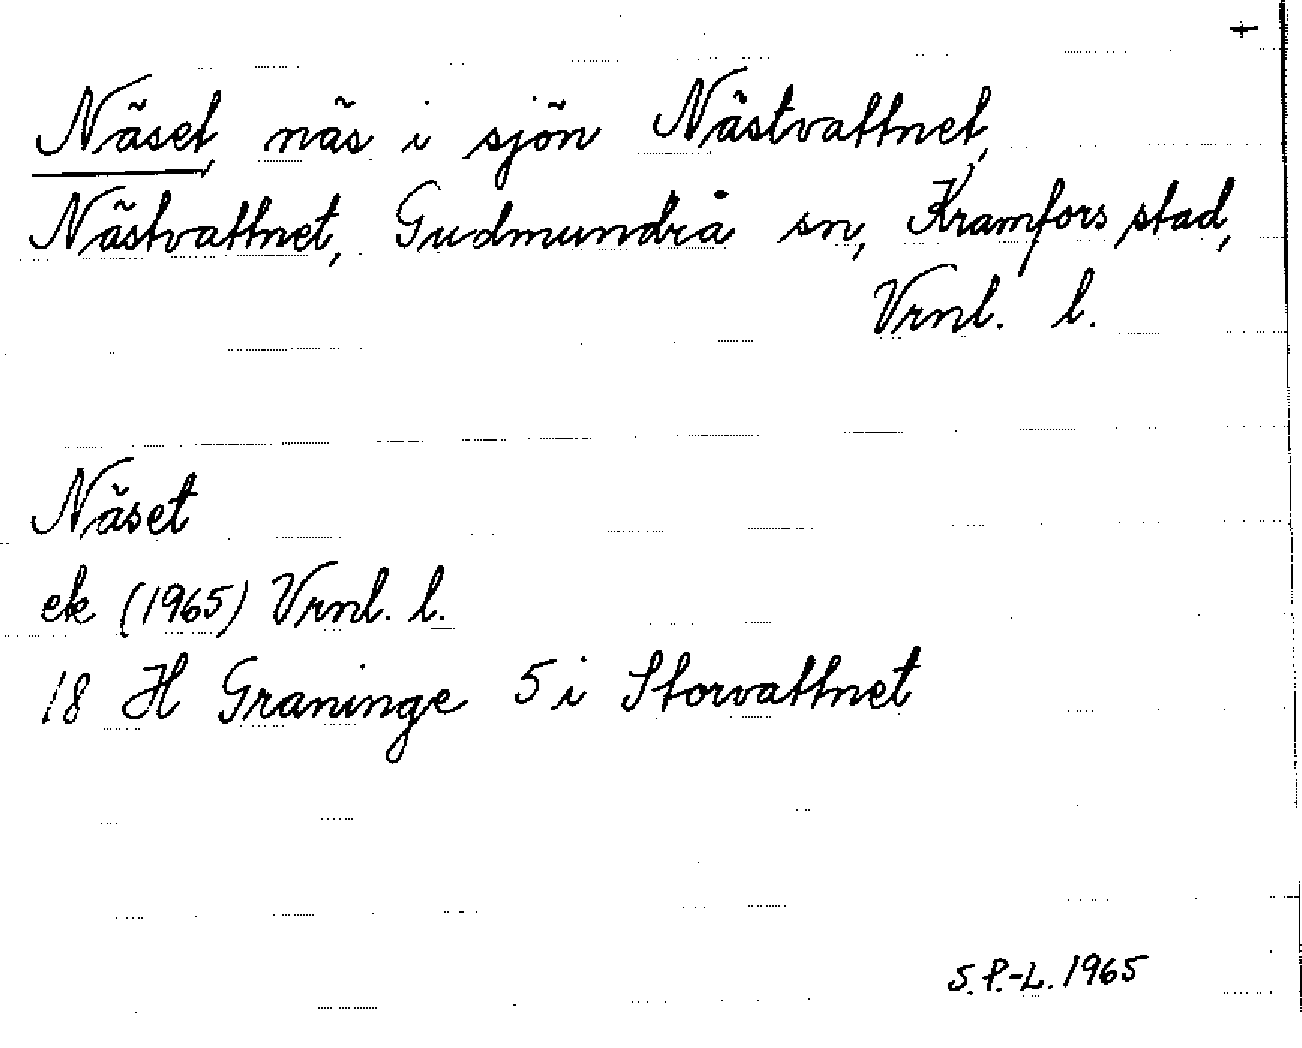 Näset, näs i sjön Nästvattnet,
Nästvattnet, Gudmundrå sn, Kramfors stad,
Vrnl. l.
Näset
ek (1965) Vrnl. l.
18 H Graninge 5 i Storvattnet
S.P.-L. 1965